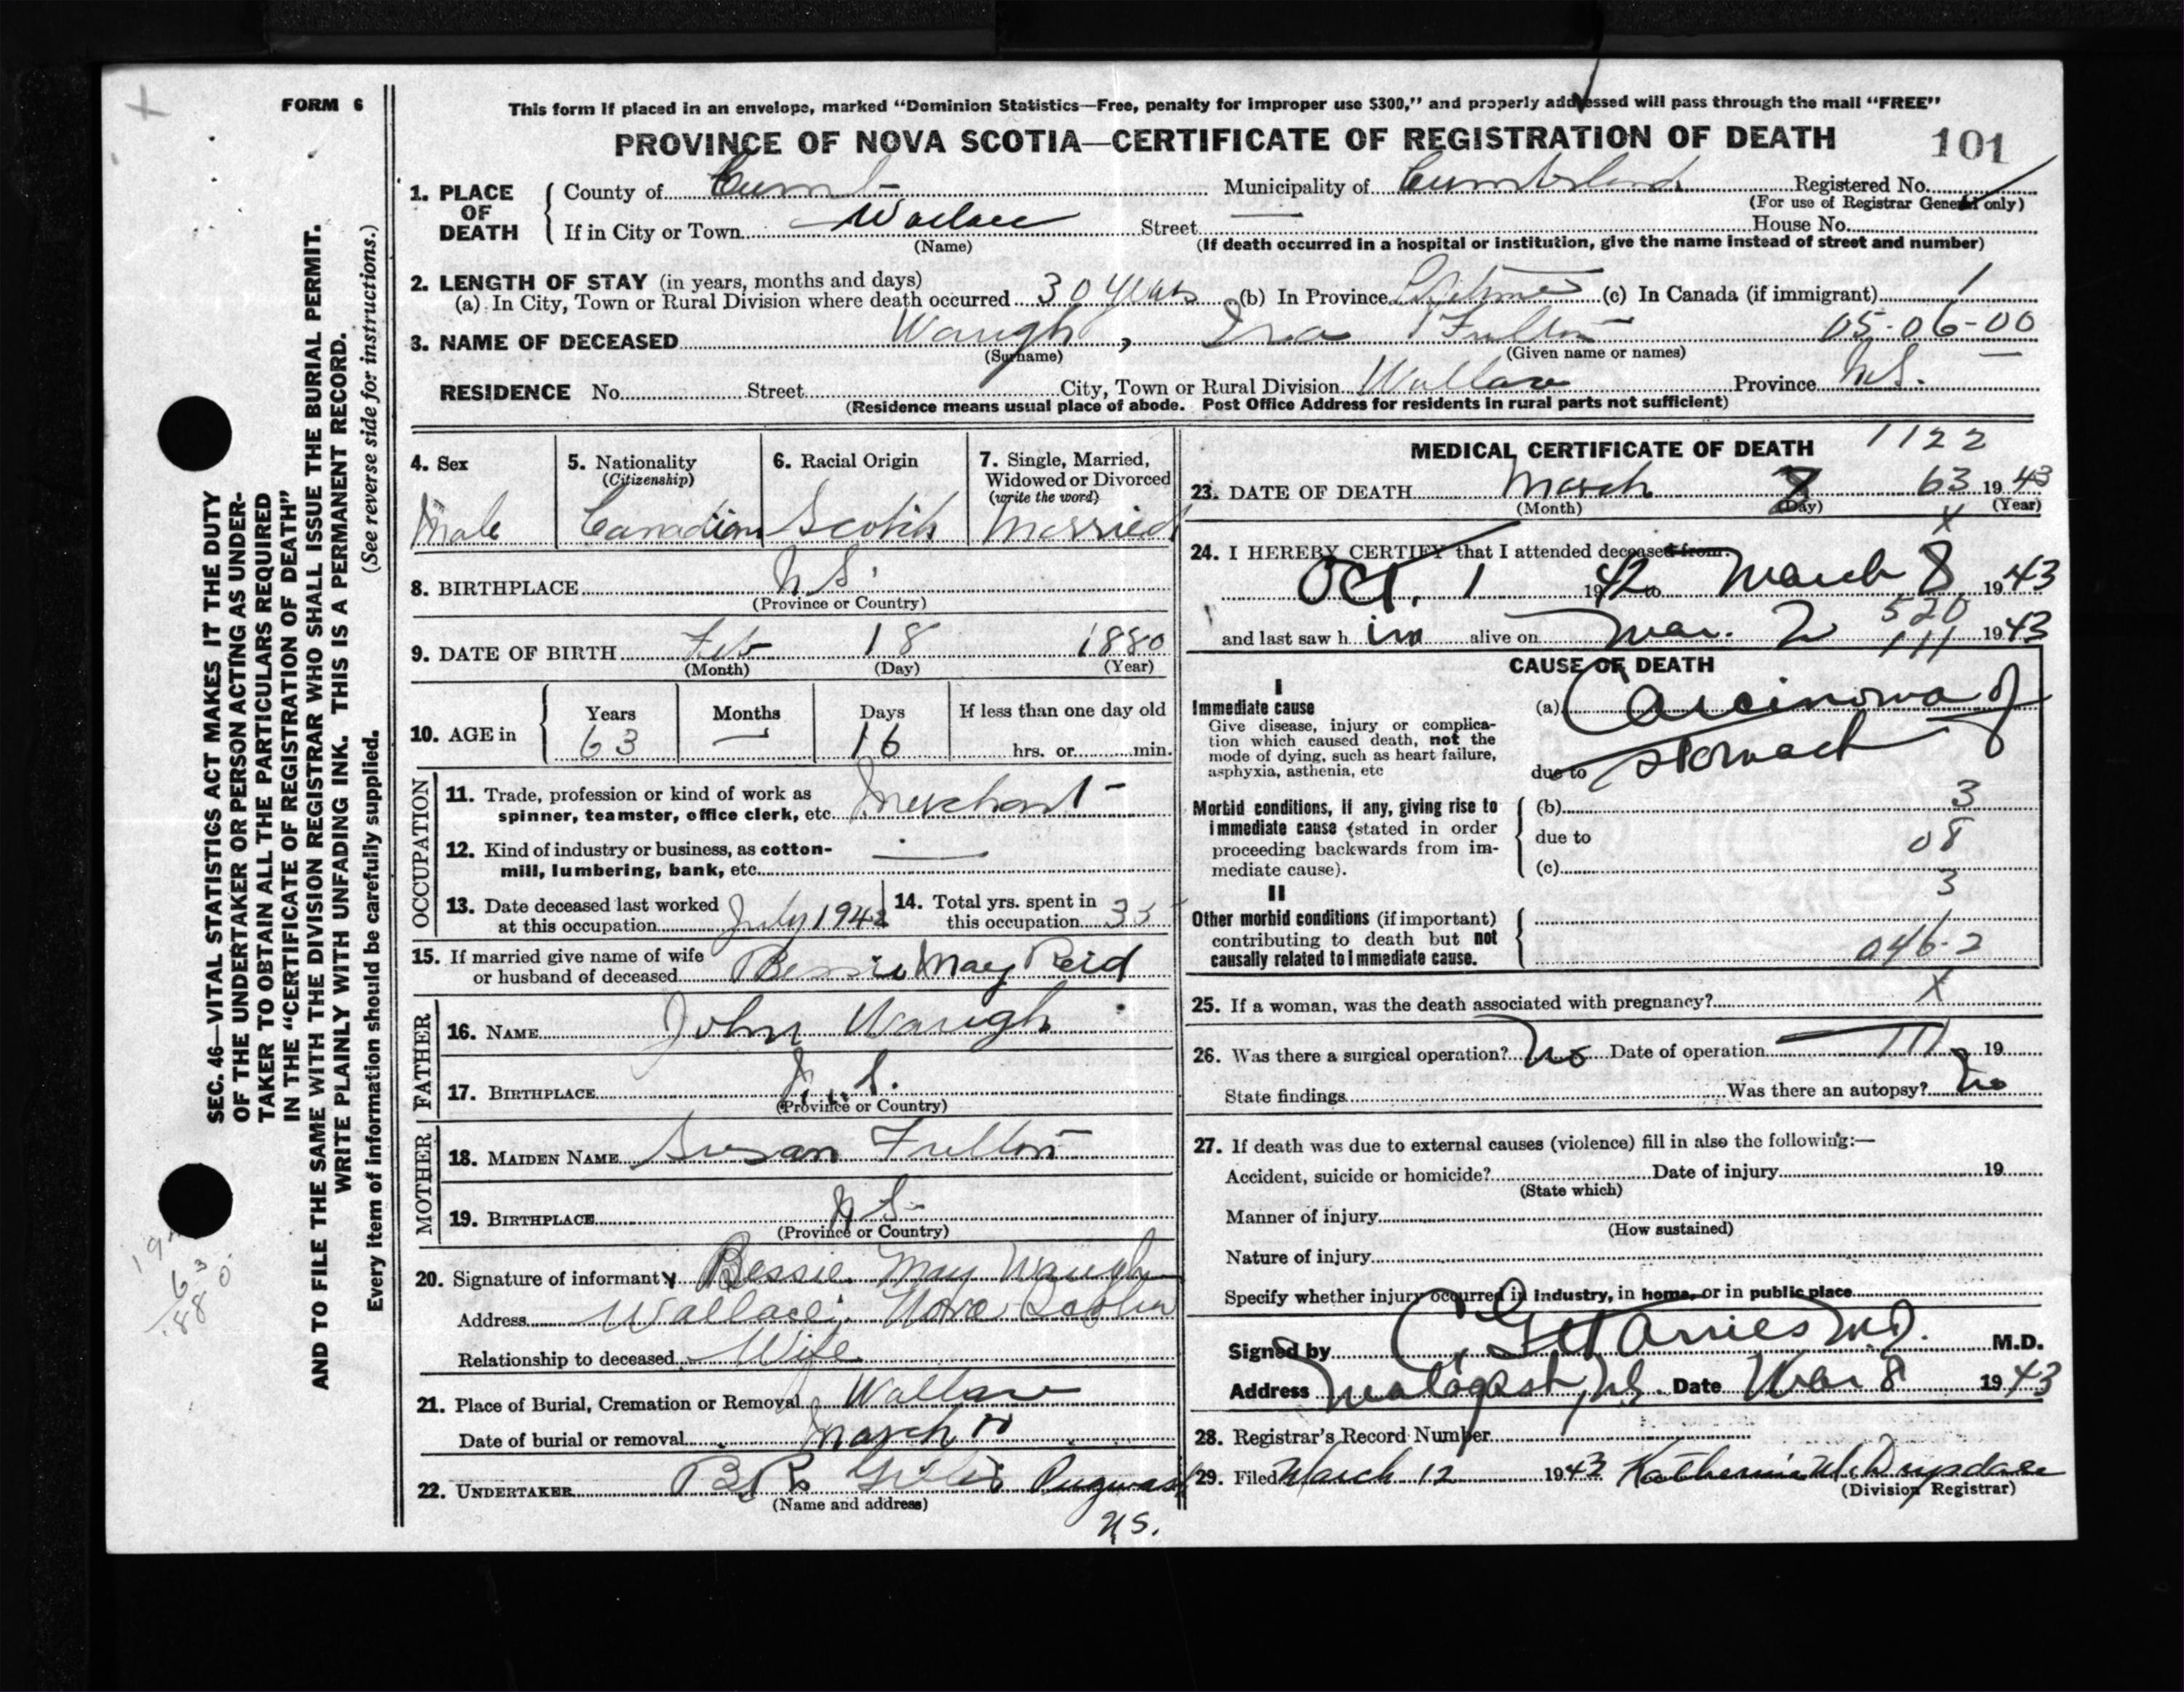 FORM 6
This form if placed in an envelope, marked "Dominion Statistics—Free, penalty for improper use $300," and properly addressed will pass through the mail "FREE"
PROVINCE OF NOVA SCOTIA—CERTIFICATE OF REGISTRATION OF DEATH 101
1. PLACE OF DEATH
County of Cumb Municipality of Cumberland Registered No.
(For use of Registrar General only)
If in City or Town Wallace Street House No.
(Name) (If death occurred in a hospital or institution, give the name instead of street and number)
2. LENGTH OF STAY (in years, months and days)
(a) In City, Town or Rural Division where death occurred 30 years (b) In Province Lifetime (c) In Canada (if immigrant)
3. NAME OF DECEASED Waugh, Ira Fulton 05-06-00
(Surname) (Given name or names)
RESIDENCE No. Street City, Town or Rural Division Wallace Province N.S.
(Residence means usual place of abode. Post Office Address for residents in rural parts not sufficient)
4. Sex
Male
5. Nationality
(Citizenship)
Canadian
6. Racial Origin
Scotch
7. Single, Married,
Widowed or Divorced
(write the word)
Married
8. BIRTHPLACE N.S.
(Province or Country)
9. DATE OF BIRTH Feb 18 1880
(Month) (Day) (Year)
10. AGE in
Years Months Days If less than one day old
63 — 16 hrs. or min.
OCCUPATION
11. Trade, profession or kind of work as
spinner, teamster, office clerk, etc. Merchant
12. Kind of industry or business, as cotton-
mill, lumbering, bank, etc. —
13. Date deceased last worked
at this occupation July 1942
14. Total yrs. spent in
this occupation 35
15. If married give name of wife
or husband of deceased Bessie May Reid
FATHER
16. NAME John Waugh
17. BIRTHPLACE N.S.
(Province or Country)
MOTHER
18. MAIDEN NAME Susan Fulton
19. BIRTHPLACE N.S.
(Province or Country)
20. Signature of informant Bessie May Waugh
Address Wallace, Nova Scotia
Relationship to deceased Wife
21. Place of Burial, Cremation or Removal Wallace
Date of burial or removal March
22. UNDERTAKER B.R. Pugwash
(Name and address)
N.S.
MEDICAL CERTIFICATE OF DEATH 1122
23. DATE OF DEATH March 63 1943
(Month) (Day) (Year)
x
24. I HEREBY CERTIFY that I attended deceased from:
Oct. 1 1942 to March 8 1943
520
and last saw him alive on Mar. 2 1943
111
CAUSE OF DEATH
I
Immediate cause
Give disease, injury or complica-
tion which caused death, not the
mode of dying, such as heart failure,
asphyxia, asthenia, etc
(a) Carcinoma of
due to stomach
Morbid conditions, if any, giving rise to
immediate cause (stated in order
proceeding backwards from im-
mediate cause).
(b) 3
due to 08
(c) 3
II
Other morbid conditions (if important)
contributing to death but not
causally related to immediate cause.
046-2
25. If a woman, was the death associated with pregnancy? X
26. Was there a surgical operation? No Date of operation 111 19
State findings Was there an autopsy? No
27. If death was due to external causes (violence) fill in also the following:—
Accident, suicide or homicide? Date of injury 19
(State which)
Manner of injury
(How sustained)
Nature of injury
Specify whether injury occurred in industry, in home, or in public place
Signed by M.D. M.D.
Address Malagash, N.S. Date Mar 8 1943
28. Registrar's Record Number
29. Filed March 12 1943 Katherine M. Drysdale
(Division Registrar)
SEC. 46—VITAL STATISTICS ACT MAKES IT THE DUTY
OF THE UNDERTAKER OR PERSON ACTING AS UNDER-
TAKER TO OBTAIN ALL THE PARTICULARS REQUIRED
IN THE "CERTIFICATE OF REGISTRATION OF DEATH"
AND TO FILE THE SAME WITH THE DIVISION REGISTRAR WHO SHALL ISSUE THE BURIAL PERMIT.
WRITE PLAINLY WITH UNFADING INK. THIS IS A PERMANENT RECORD.
(See reverse side for instructions.)
Every item of information should be carefully supplied.